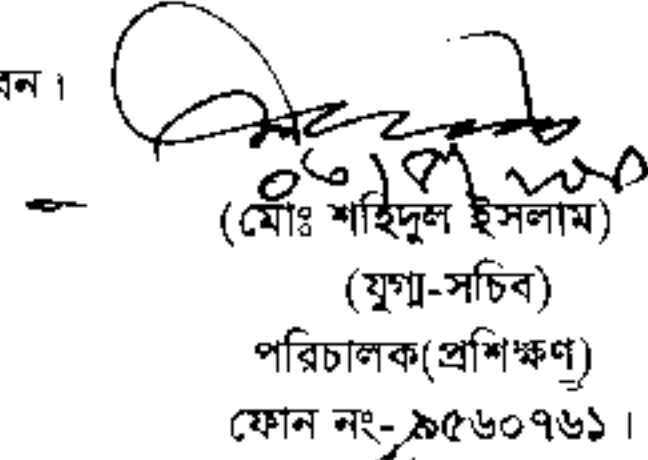 বন।
(মোঃ শহিদুল ইসলাম)
(যুগ্ম-সচিব)
পরিচালক(প্রশিক্ষণ)
ফোন নং- ৯৫৬০৭৬১।